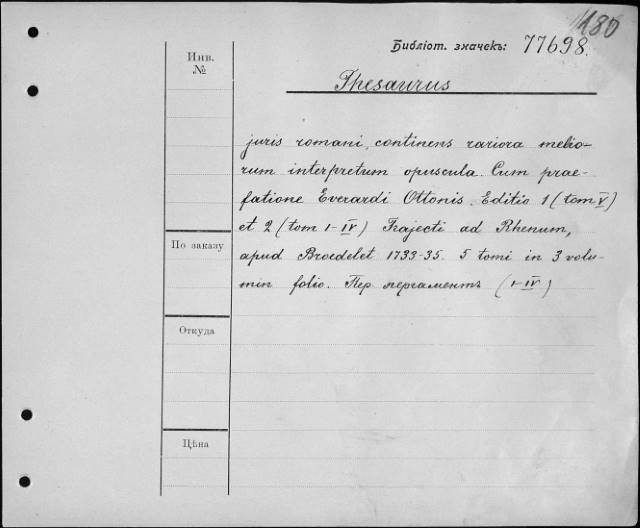 180
Библіот. значекъ: 77698.
Инв.
№
Thesaurus
juris romani, continens rariora melio-
rum interpretum opuscula. Cum prae-
fatione Everardi Ottonis. Editio 1 (tom V)
et 2 (tom I-IV) Trajecti ad Rhenum,
По заказу
apud Broedelet 1733-35. 5 tomi in 3 volu-
min folio. Пер. пергаментъ (I-IV)
Откуда
Цѣна